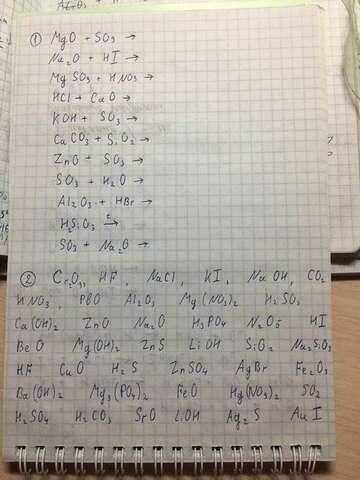 ① MgO + SO₃ →
Na₂O + HI →
MgSO₃ + HNO₃ →
HCl + CaO →
KOH + SO₃ →
CaCO₃ + SiO₂ →
ZnO + SO₃ →
SO₃ + H₂O →
Al₂O₃ + HBr →
H₂SiO₃ →
SO₃ + Na₂O →
② Cr₂O₃, HF, NaCl, KI, NaOH, CO₂
HNO₃, PbO Al₂O₃ Mg(NO₃)₂ H₂SO₃
Ca(OH)₂ ZnO Na₂O H₃PO₄ N₂O₅ HI
BeO Mg(OH)₂ ZnS LiOH SiO₂ Na₂SiO₃
HF CuO H₂S ZnSO₄ AgBr Fe₂O₃
Ba(OH)₂ Mg₃(PO₄)₂ FeO Hg(NO₃)₂ SO₂
H₂SO₄ H₂CO₃ SrO LiOH Ag₂S AuI